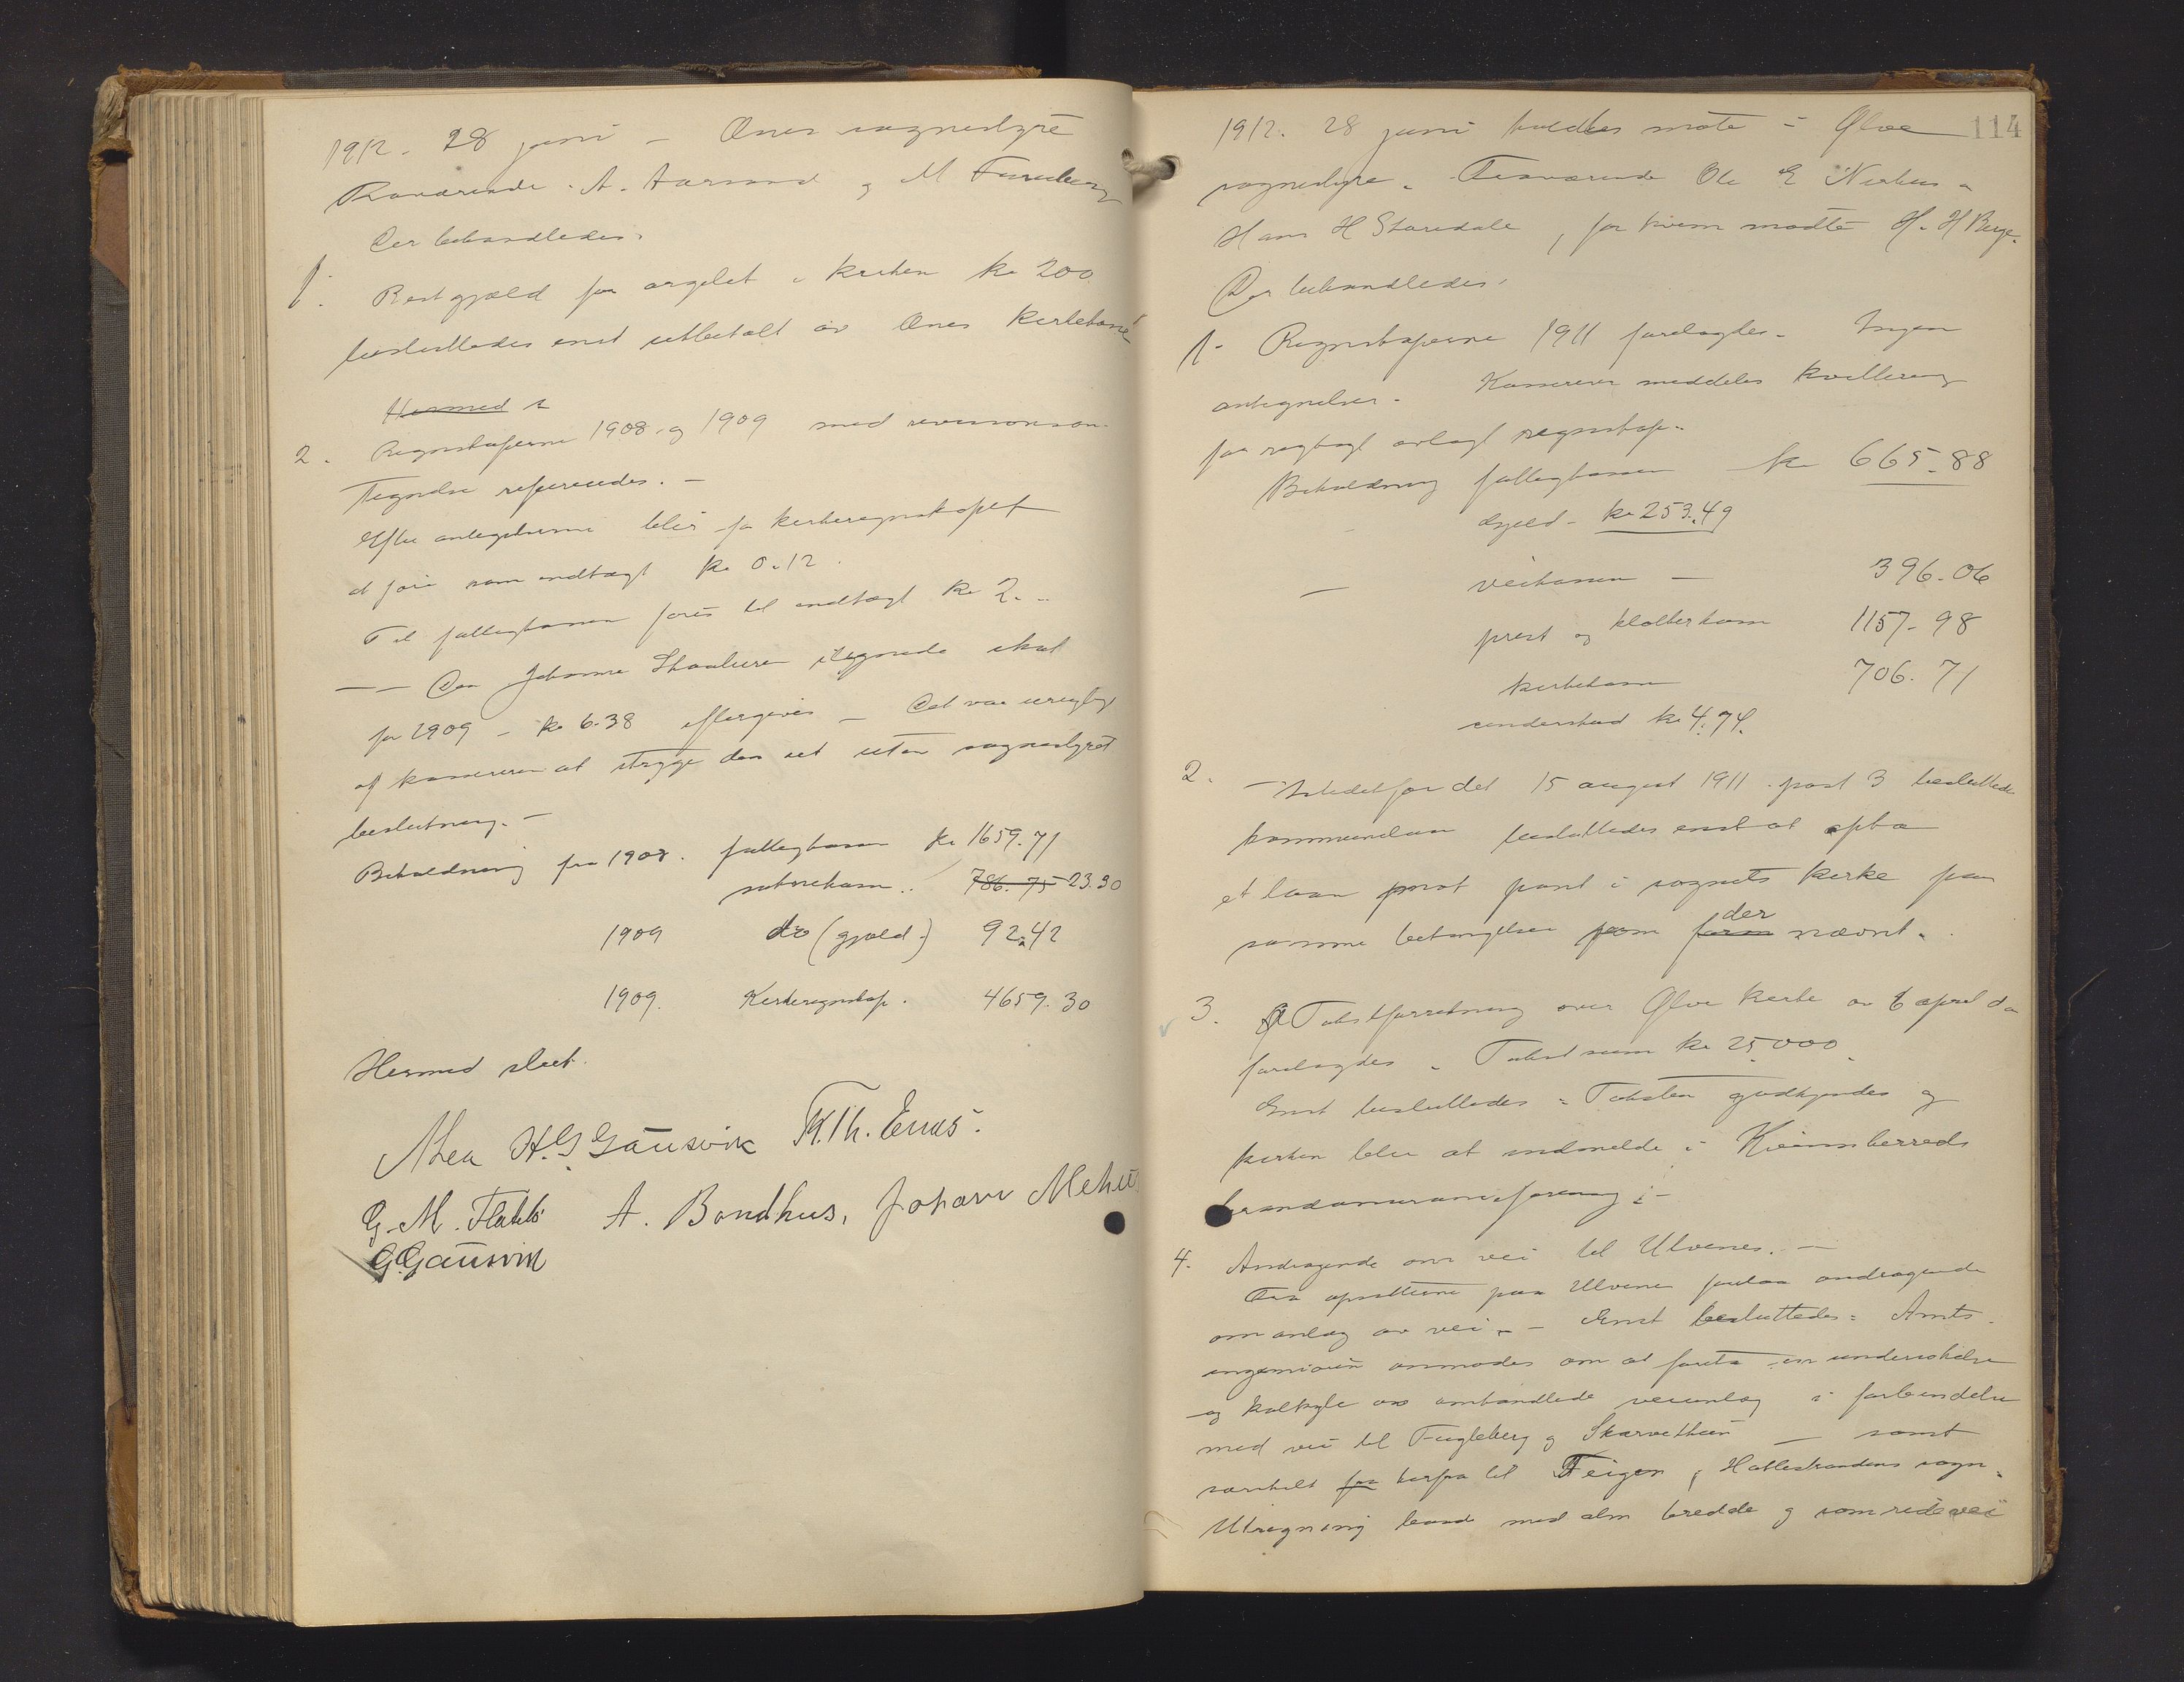 1912. 28 juni - Ænes sognestyre
Fraværende A. Aarsand og M Furuberg
Der behandledes.
1. Restgjæld paa orgelet i kirken kr 200
besluttedes enst utbetalt av Ænes kirkekasse
Hermed s
2. Regnskaperne 1908 og 1909 med revisionsan-
tegnelse refereredes. -
Efter antegnelserne blir for kirkeregnskapet
at føre som indtægt kr 0.12.
Til fattigkassen føres til indtægt kr 2. -
— — Den Johanna lignede skat
for 1909 - kr 6.38 eftergives - Det var uregtig
af kassereren at stryge den ut uten sognestyrets
beslutning. -
Beholdning fra 1908. fattigkassen kr 1659.71
786.75 23.30
1909 do (gjæld) 92.42
1909. Kirkeregnskap. 4659.30
Hermed slut.
H. G. Gausvik K. Th. Enæs.
G. M. Flatebø A. Bondhus, Johan Mehus
G. Gausvik
114
1912. 28 juni holdtes møte i Ølve
sognestyre. Fraværende Ole E Nerhus -
Hans H Staredale, for hvem mødte H. H Berge.
Der behandledes.
1. Regnskaperne 1911 forelagtes. Ingen
antegnelser. Kassereren meddeles kvittering
for rigtigt avlagt regnskap.
Beholdning fattigkassen kr 665.88
Gjæld - kr 253.49
— veikassen — 396.06
prest og klokkerkassen 1157.98
kirkekassen 706.71
underskud kr 4.74.
2. - Istedetfor det 15 august 1911 post 3 besluttede
kommunelaan besluttedes enst at opta
et laan mot pant i sognets kirke paa
samme betingelser som der nævnt.
3. Takstforretning over Ølve kirke av 6 april d.a
forelagdes. Takstsum kr 25000.
Enst besluttedes: Taksten godkjendes og
kirken blir at indmelde i Kvinnherreds
brandassuranceforening. -
4. Andragende om vei til Ulvenes. -
Fra opsitterne paa Ulvenes forelaa andragende
om anlæg av vei. - Enst besluttedes: Amts-
ingeniøren anmodes om at foreta en undersøkelse
og kalkyle av omhandlede veianlæg i forbindelse
med vei til Fugleberg og Skarvettun — samt
særskilt herfra til Teigen, Hatlestrandens sogn.
Utregning baade med alm bredde og som ridevei